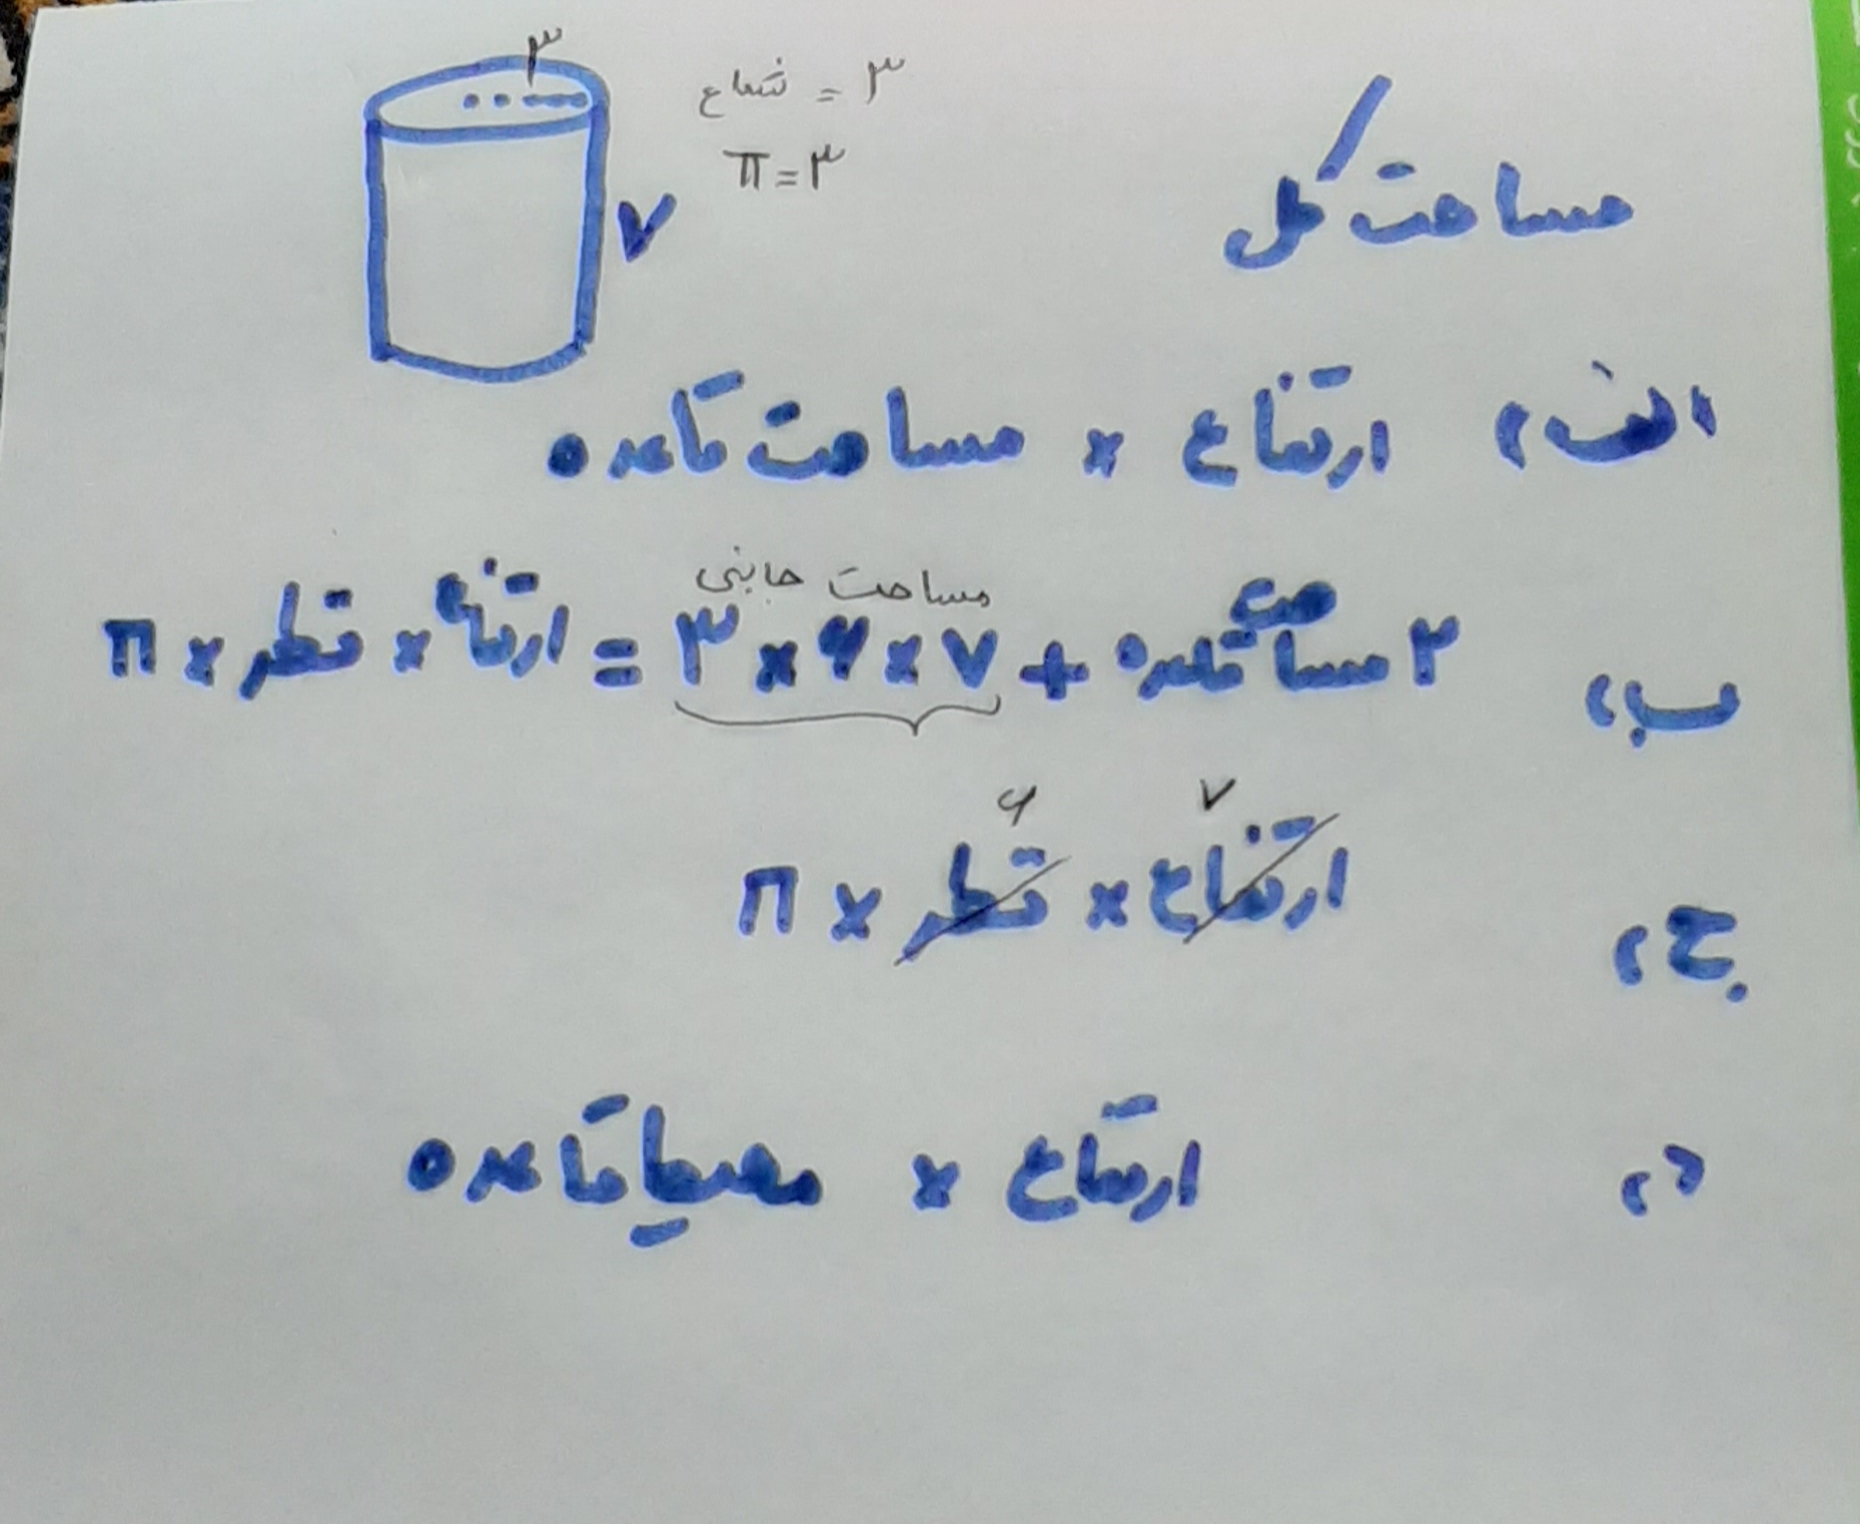 ۳
شعاع = ۳
π = ۳
۷
مساحت کل
الف) ارتفاع × مساحت قاعده
مساحت جانبی
ب) ۲ مساحت قاعده + ۳ × ۶ × ۷ = π × قطر × ارتفاع
۶ ۷
ج) π × قطر × ارتفاع
د) ارتفاع × محیط قاعده